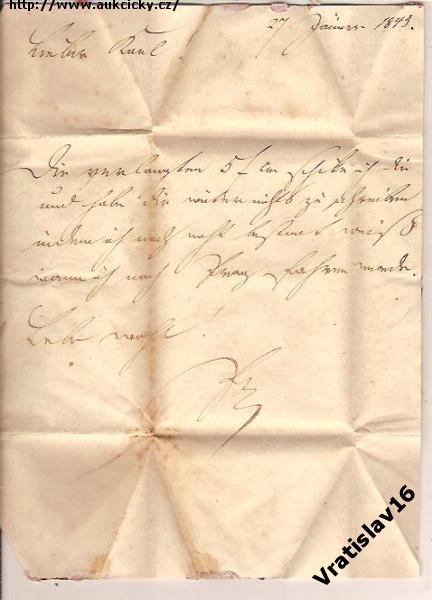 http://www.aukcicky.cz/
27 Jänner 1843.
Lieber Karl
Die verlangten 5 f cm schike ich dir
und habe dir weiter nichts zu schreiben
indem ich noch nicht bestimt weiß
wann ich nach Prag fahren werde.
Lebe wohl!
Vratislav16